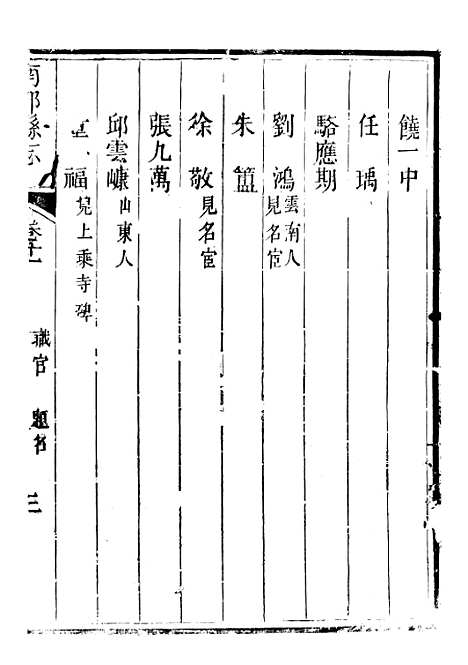 饒一中
任瑀
駱應期
劉鴻雲南人見名宦
朱簠
徐敬見名宦
張九萬
邱雲𡾓山東人
福見上乘寺碑
南部縣志 卷十一 職官 題名 三